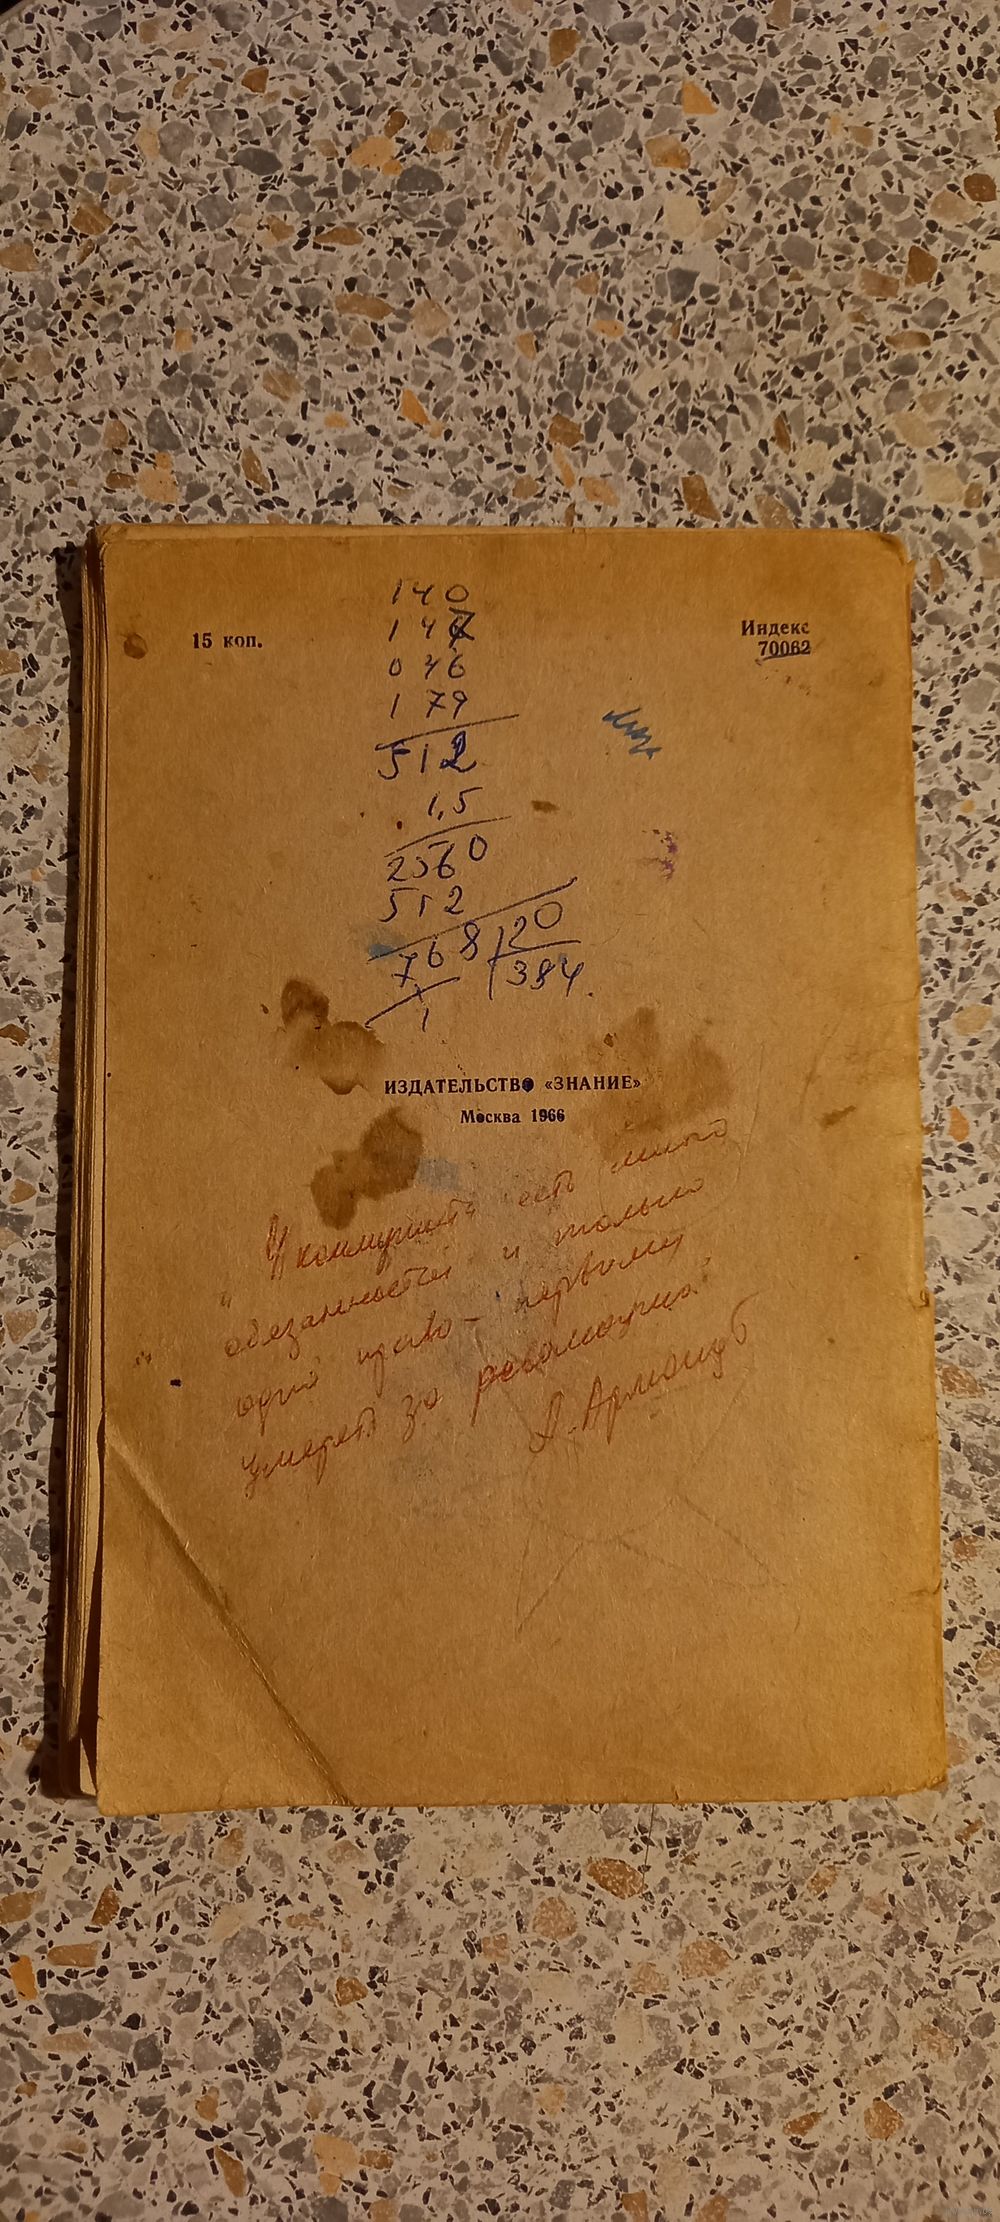 140
147
046
179
512
1,5
2560
512
768 120
384.
1
15 коп.
Индекс
70062
ИЗДАТЕЛЬСТВО «ЗНАНИЕ»
Москва 1966
"У коммуниста есть много
обязанностей и только
одно право - первому
умереть за революцию."
А. Армонуб